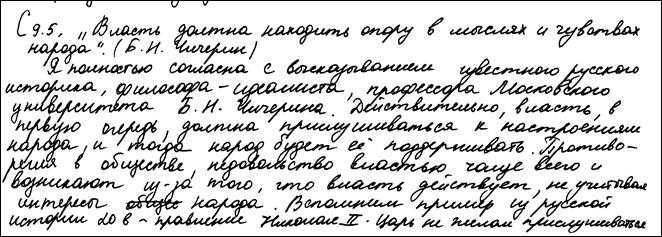 С 9.5. „Власть должна находить опору в мыслях и чувствах
народа". (Б. Н. Чичерин)
Я полностью согласна с высказыванием известного русского
историка, философа-идеалиста, профессора Московского
университета Б. Н. Чичерина. Действительно, власть, в
первую очередь, должна прислушиваться к настроениям
народа, и тогда народ будет её поддерживать. Противо-
речия в обществе, недовольство властью, чаще всего и
возникают из-за того, что власть действует, не учитывая
интересы народа. Вспомним пример из русской
истории 20 в - правление Николая II. Царь не желал прислушиваться